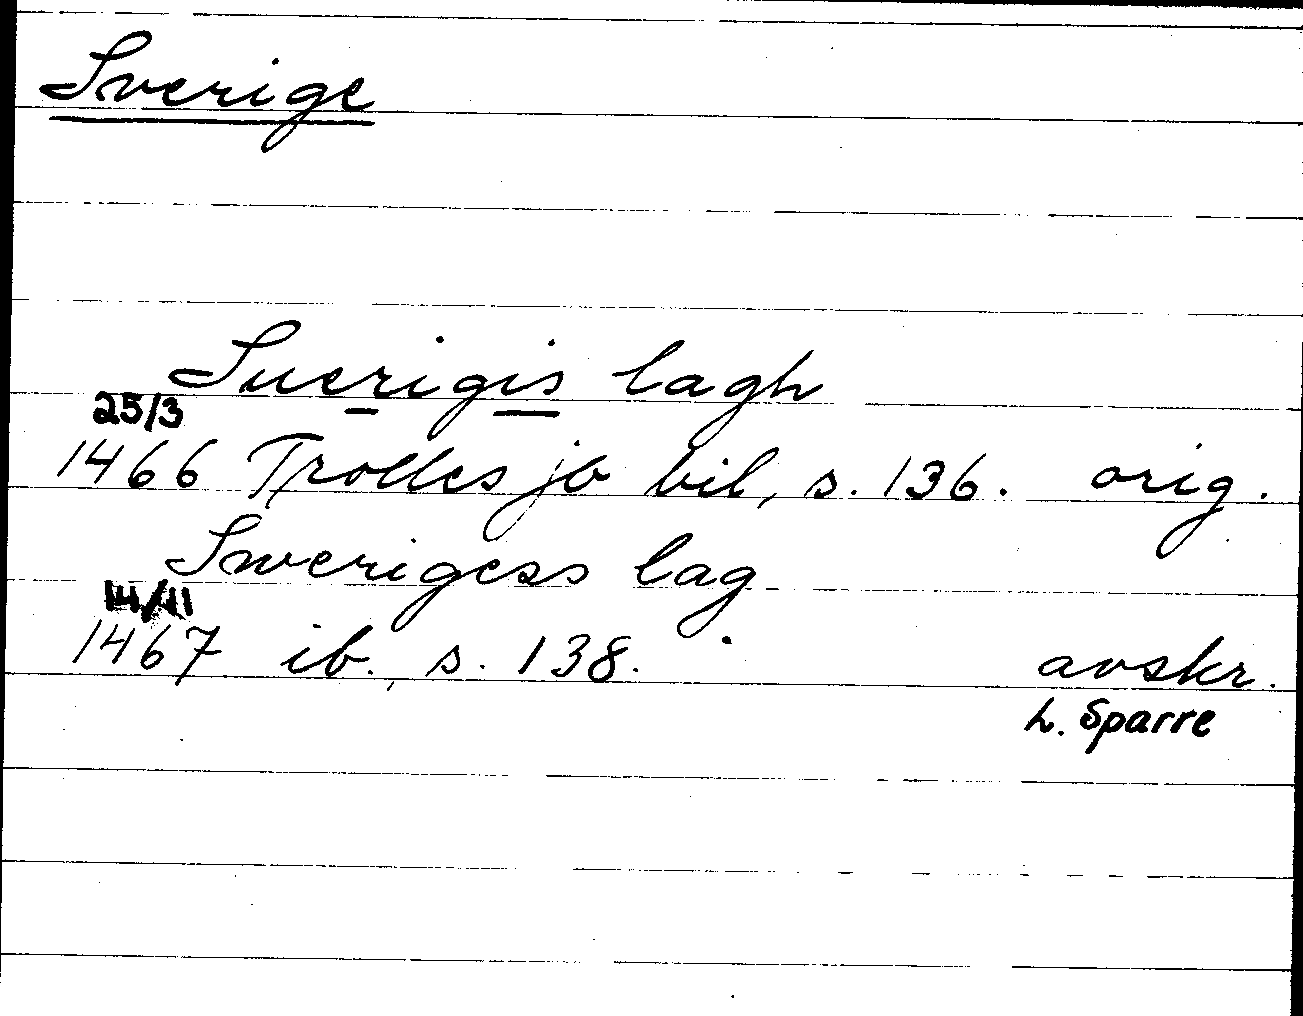 Sverige
Suerigis lagh
25/3
1466 Trolles jb bil, s. 136. orig.
Swerigess lag
14/11
1467 ib., s. 138. avskr.
L. Sparre